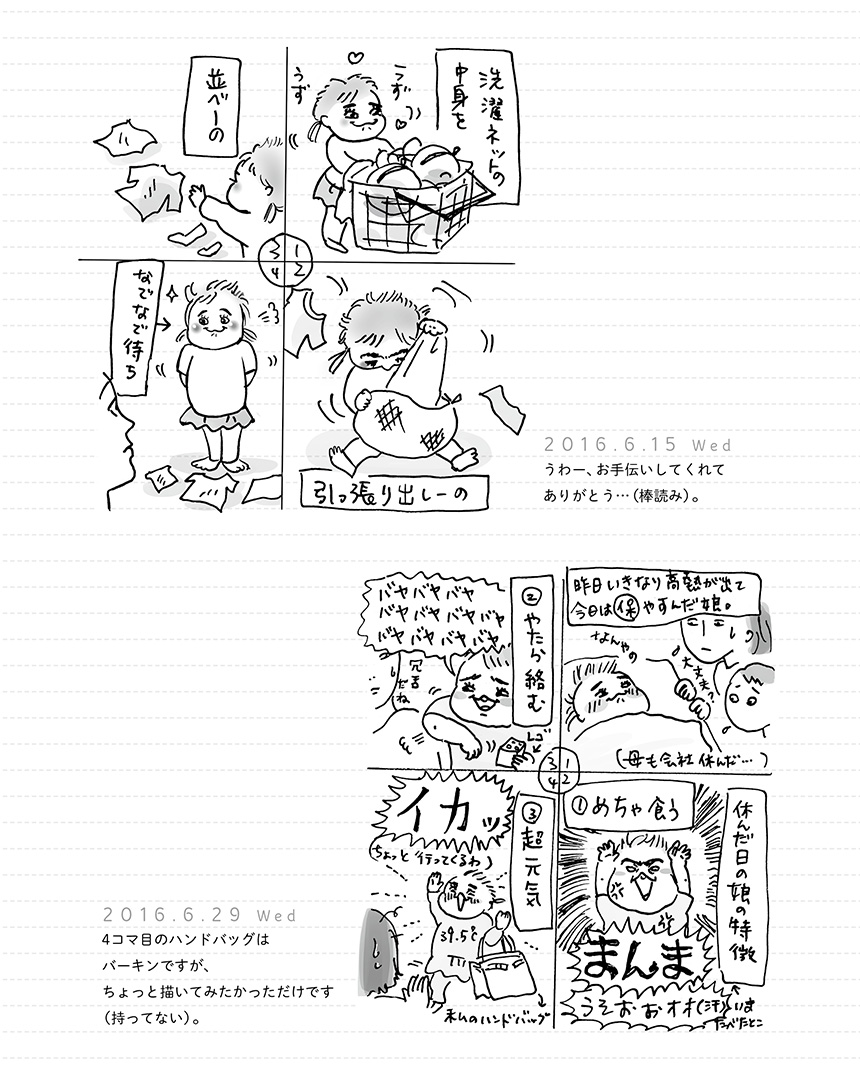 洗濯ネットの
中身を
うず
うず
引っ張り出しーの
並べーの
なでなで待ち
1
2
3
4
2016.6.15 Wed
うわー、お手伝いしてくれて
ありがとう…（棒読み）。
昨日いきなり高熱が出て
今日は保やすんだ娘。
大丈夫?
（母も会社休んだ…）
休んだ日の娘の特徴
①めちゃ食う
まんま
うそおぉオオ(汗)
いま
たべたとこ
②やたら絡む
バヤバヤバヤ
バヤバヤバヤバヤ
バヤバヤバヤバヤ
冗舌
だね
レゴ
③超元気
イカッ
（ちょっと行ってくるわ）
39.5℃
私のハンドバッグ
1
2
3
4
2016.6.29 Wed
4コマ目のハンドバッグは
バーキンですが、
ちょっと描いてみたかっただけです
（持ってない）。